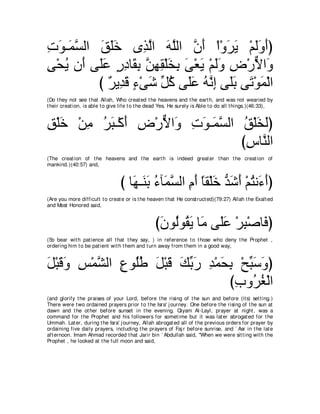 أَوَلَمْ يَرَوْاْ أَنَّ اللَّهَ الَّذِى خَلَقَ السَّمَـوَتِ
وَالاٌّرْضَ وَلَمْ يَعْىَ بِخَلْقِهِنَّ بِقَادِرٍ عَلَى أَن يُحْىِ
الْمَوْتَى بَلَى إِنَّهُ عَلَى كُلِّ شَىْءٍ قَدِيرٌ )
(Do they not see that Allah, Who created the heavens and the earth, and was not wearied by their creation, is able to give life to the dead Yes, He surely is Able to do all things.)(46:33),
لَخَلْقُ السَّمَـوَتِ وَالاٌّرْضِ أَكْـبَرُ مِنْ خَلْقِ
النَّاسِ)
(The creation of the heavens and the earth is indeed greater than the creation of mankind.)(40:57) and,
أَءَنتُمْ أَشَدُّ خَلْقاً أَمِ السَّمَآءُ بَنَـهَا )
(Are you more difficult to create or is the heaven that He constructed)(79:27) Allah the Exalted and Most Honored said,
فَاصْبِرْ عَلَى مَا يَقُولُونَ)
(So bear with patience all that they say, ) in reference to those who deny the Prophet , ordering him to be patient with them and turn away from them in a good way,
وَسَبِّحْ بِحَمْدِ رَبِّكَ قَبْلَ طُلُوعِ الشَّمْسِ وَقَبْلَ
الْغُرُوبِ)
(and glorify the praises of your Lord, before the rising of the sun and before (its) setting.) There were two ordained prayers prior to the Isra' journey. One before the rising of the sun at dawn and the other before sunset in the evening. Qiyam Al-Layl, prayer at night, was a command for the Prophet and his followers for sometime but it was later abrogated for the Ummah. Later, during the Isra' journey, Allah abrogated all of the previous orders for prayer by ordaining five daily prayers, including the prayers of Fajr before sunrise, and `Asr in the late afternoon. Imam Ahmad recorded that Jarir bin `Abdullah said, "When we were sitting with the Prophet , he looked at the full moon and said,